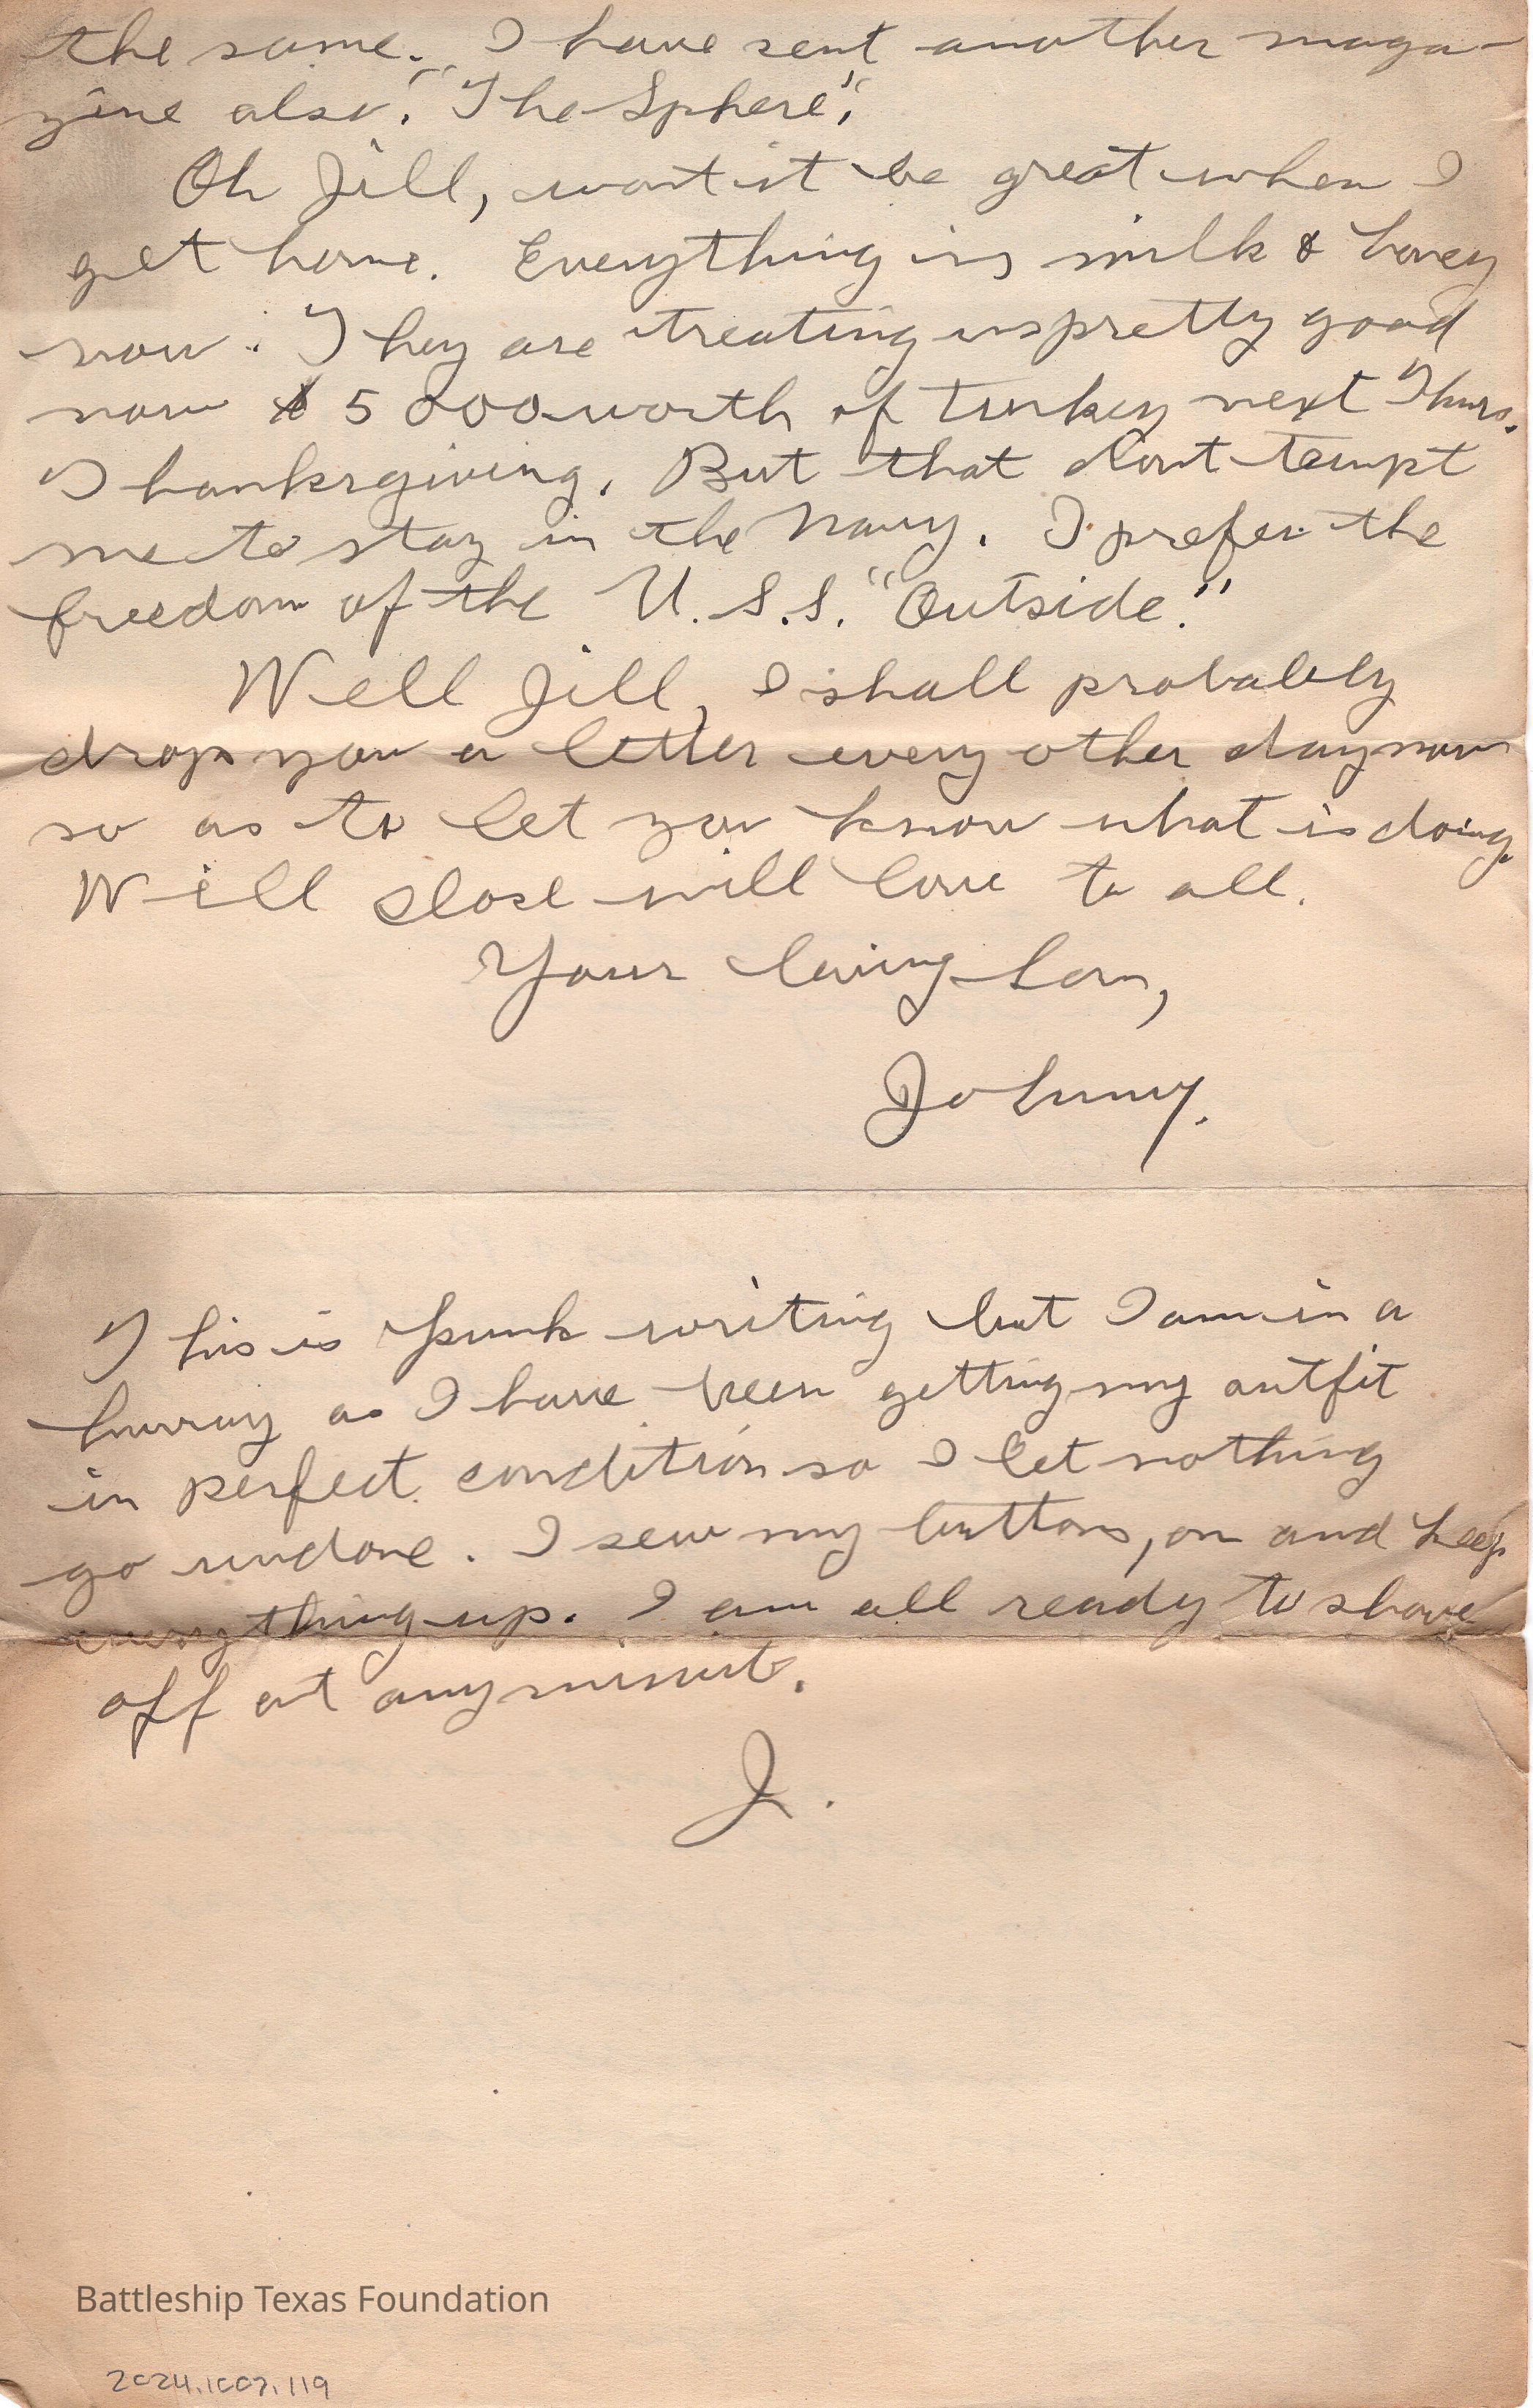 the same. I have sent another maga-
zine also. "The Sphere".
Oh Jill, wont it be great when I
get home. Everything is milk & honey
now. They are treating us pretty good
now $ 5 000 worth of turkey next Thurs.
Thanksgiving. But that dont tempt
me to stay in the Navy. I prefer the
freedom of the U.S.S. "Outside."
Well Jill, I shall probably
drop you a letter every other day now
so as to let you know what is doing.
Will close will love to all.
Your loving son,
Johnny.
This is punk writing but I am in a
hurry as I have been getting my outfit
in perfect condition so I let nothing
go undone. I sew my buttons, on and keep
everything up. I am all ready to shove
off at any minute.
J.
Battleship Texas Foundation
2024.1007.119